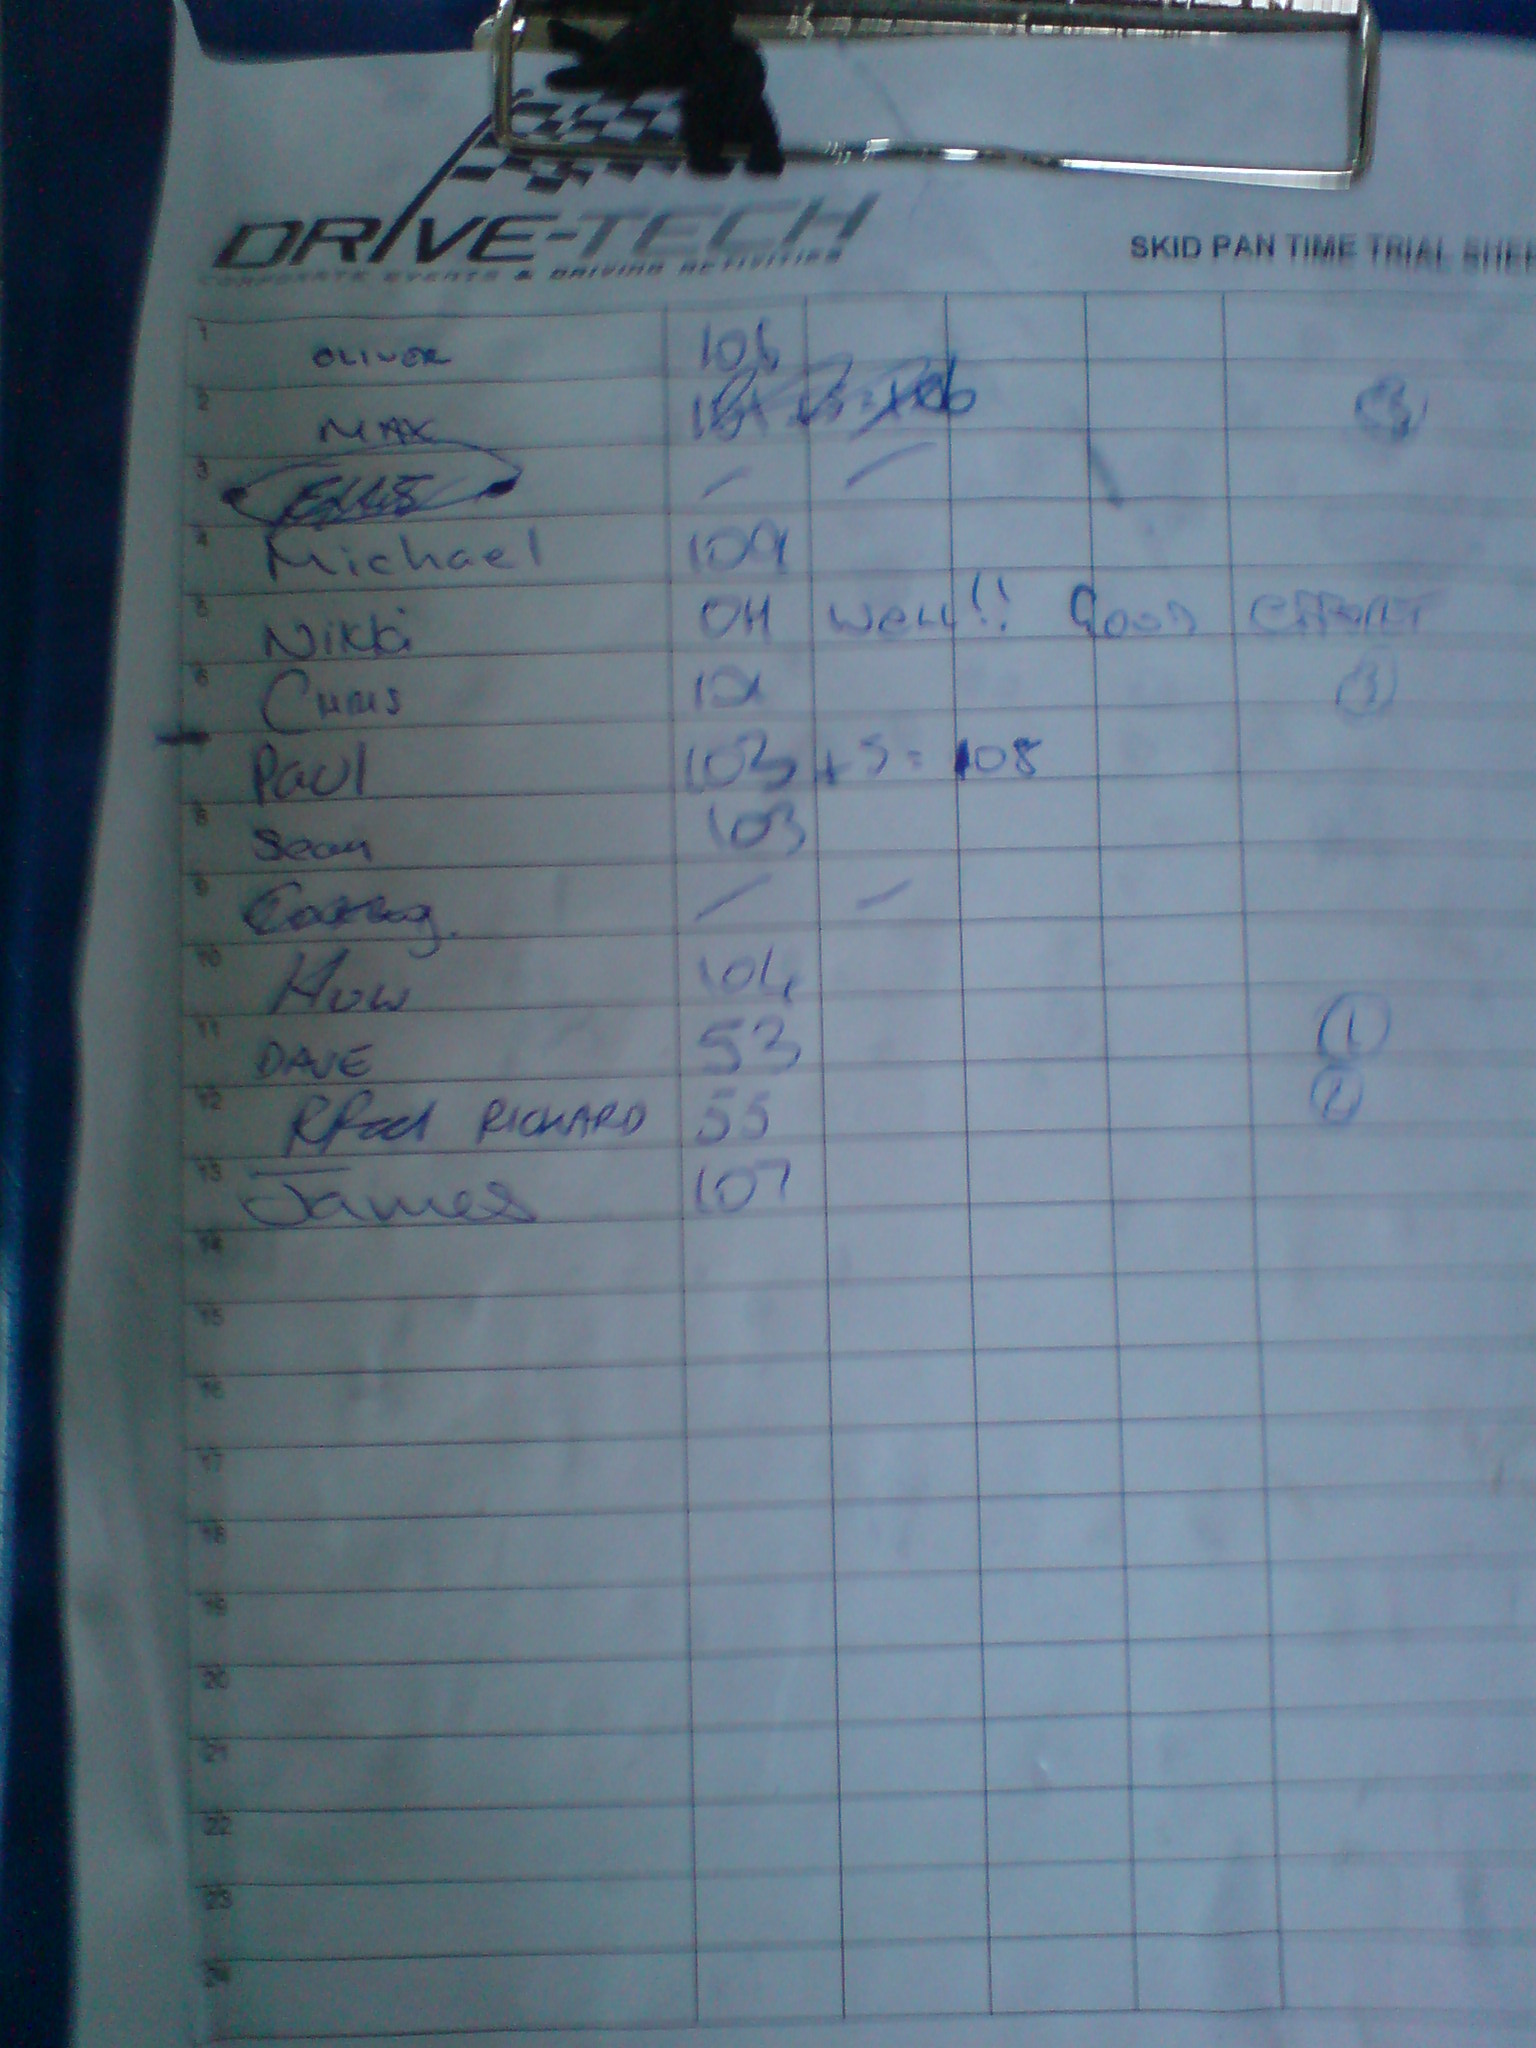 DRIVE-TECH
CORPORATE EVENTS & DRIVING ACTIVITIES
SKID PAN TIME TRIAL SHEE
1 OLIVER 106
2 MAX
3
4 Michael 109
5 Nikki OH WELL!! GOOD EFFORT
6 CHRIS 101
PAUL 103 + 5 = 108
8 Sean 103
9
10 HUW 104
11 DAVE 53 1
12 RICHARD 55 2
13 James 107
14
15
16
17
18
19
20
21
22
23
24